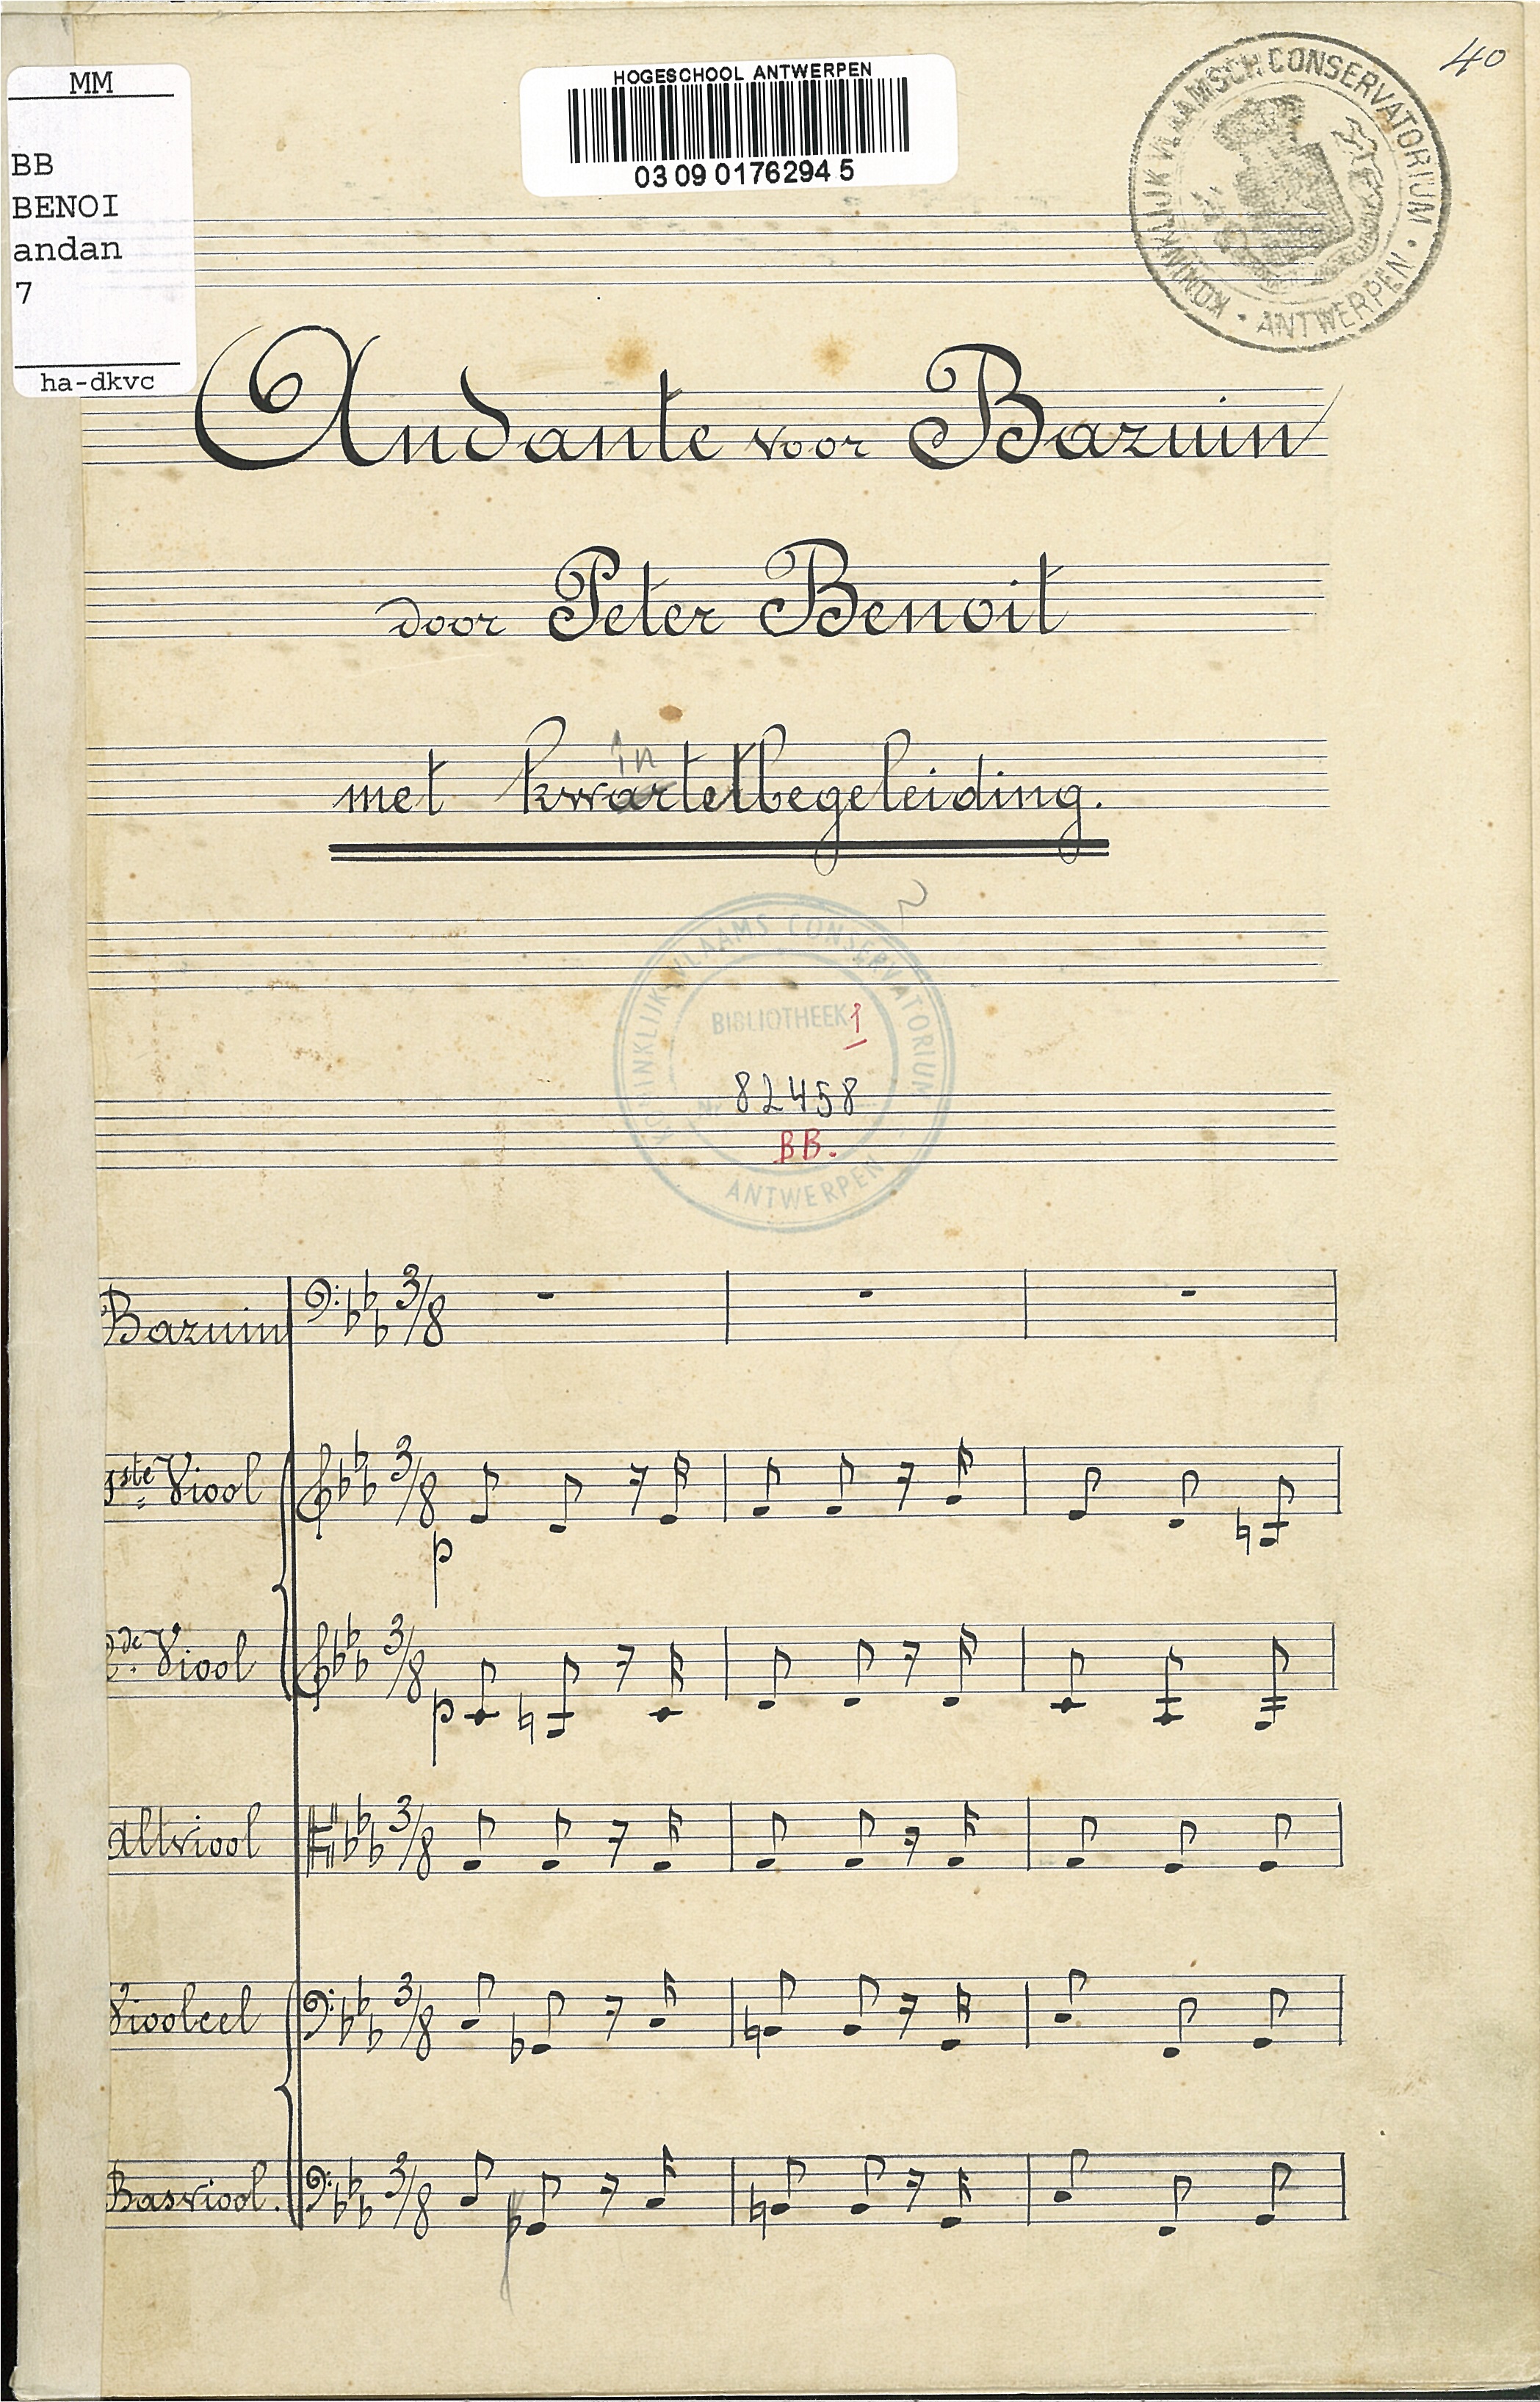 MM
BB
BENOI
andan
7
ha-dkvc
HOGESCHOOL ANTWERPEN
03 09 0176294 5
KONINKLIJK VLAAMSCH CONSERVATORIUM • ANTWERPEN •
40
Andante voor Bazuin
door Peter Benoit
in
met kwartetbegeleiding.
KONINKLIJK VLAAMS CONSERVATORIUM
BIBLIOTHEEK 1
Nr 82458
BB.
ANTWERPEN
Bazuin 3/8
1ste Viool 3/8
p
2de Viool 3/8
p
Altviool 3/8
Violoncel 3/8
Basviool. 3/8